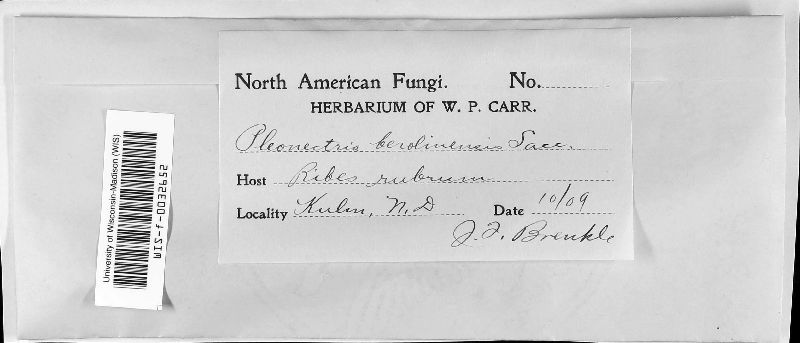 North American Fungi. No.
HERBARIUM OF W. P. CARR.
Pleonectris berolinensis Sacc.
Host Ribes rubrum
Locality Kulm, N.D Date 10/09
J. F. Brenkle
University of Wisconsin-Madison (WIS)
WIS-f-0032652